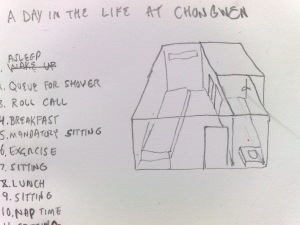 A DAY IN THE LIFE AT CHONGWEN
ASLEEP
WAKE UP
QUEUE FOR SHOWER
3. ROLL CALL
4. BREAKFAST
5. MANDATORY SITTING
6. EXERCISE
7. SITTING
8. LUNCH
9. SITTING
10. NAP TIME